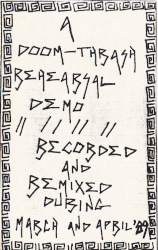 A
DOOM-THRASH
REHEARSAL
DEMO
// // // //
RECORDED
AND
REMIXED
DURING
MARCH AND APRIL '87